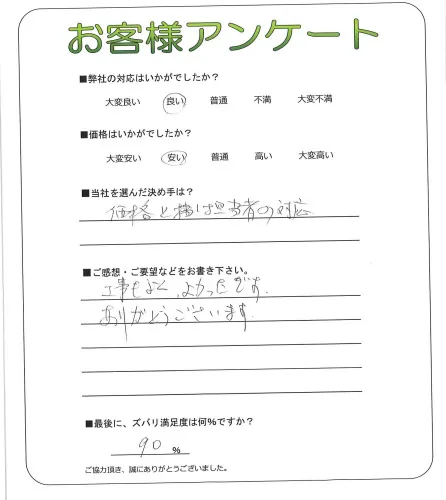 お客様アンケート
■弊社の対応はいかがでしたか?
大変良い 良い 普通 不満 大変不満
■価格はいかがでしたか?
大変安い 安い 普通 高い 大変高い
■当社を選んだ決め手は?
価格と 担当者の対応
■ご感想・ご要望などをお書き下さい。
工事もよく、よかったです.
ありがとうございます.
■最後に、ズバリ満足度は何%ですか?
90 %
ご協力頂き、誠にありがとうございました。